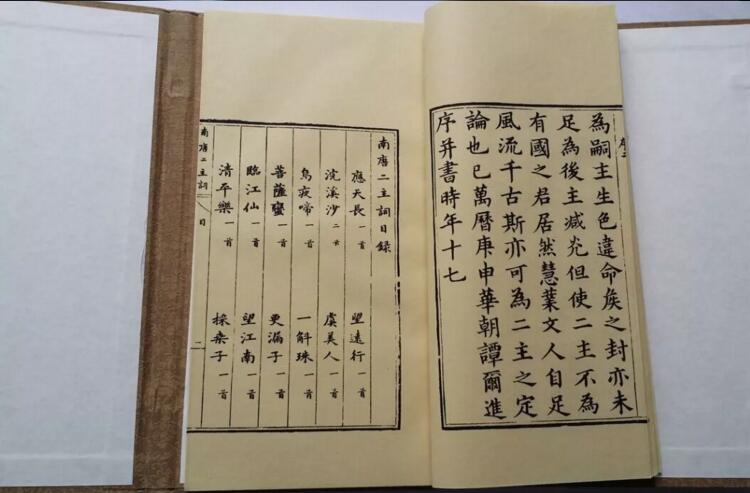 序二
為嗣主生色違命矦之封亦未
足為後主减光但使二主不為
有國之君居然慧業文人自足
風流千古斯亦可為二主之定
論也已萬曆庚申華朝譚爾進
序并書時年十七
南唐二主詞目錄
應天長 一首 望遠行 一首
浣溪沙 二首 虞美人 一首
烏夜啼 一首 一斛珠 一首
菩薩蠻 一首 更漏子 一首
臨江仙 一首 望江南 一首
清平樂 一首 採桑子 一首
南唐二主詞 目 二